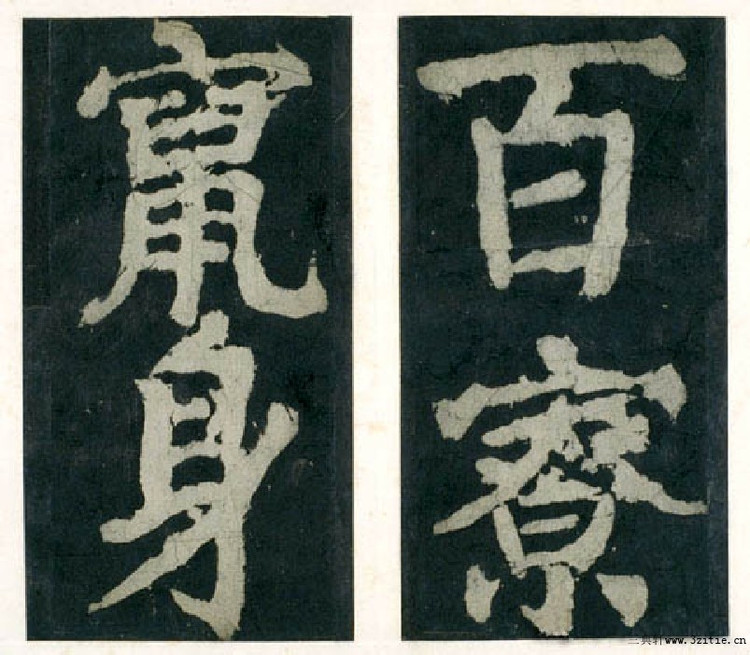 百寮
竄身
三典轩www.3zitie.cn